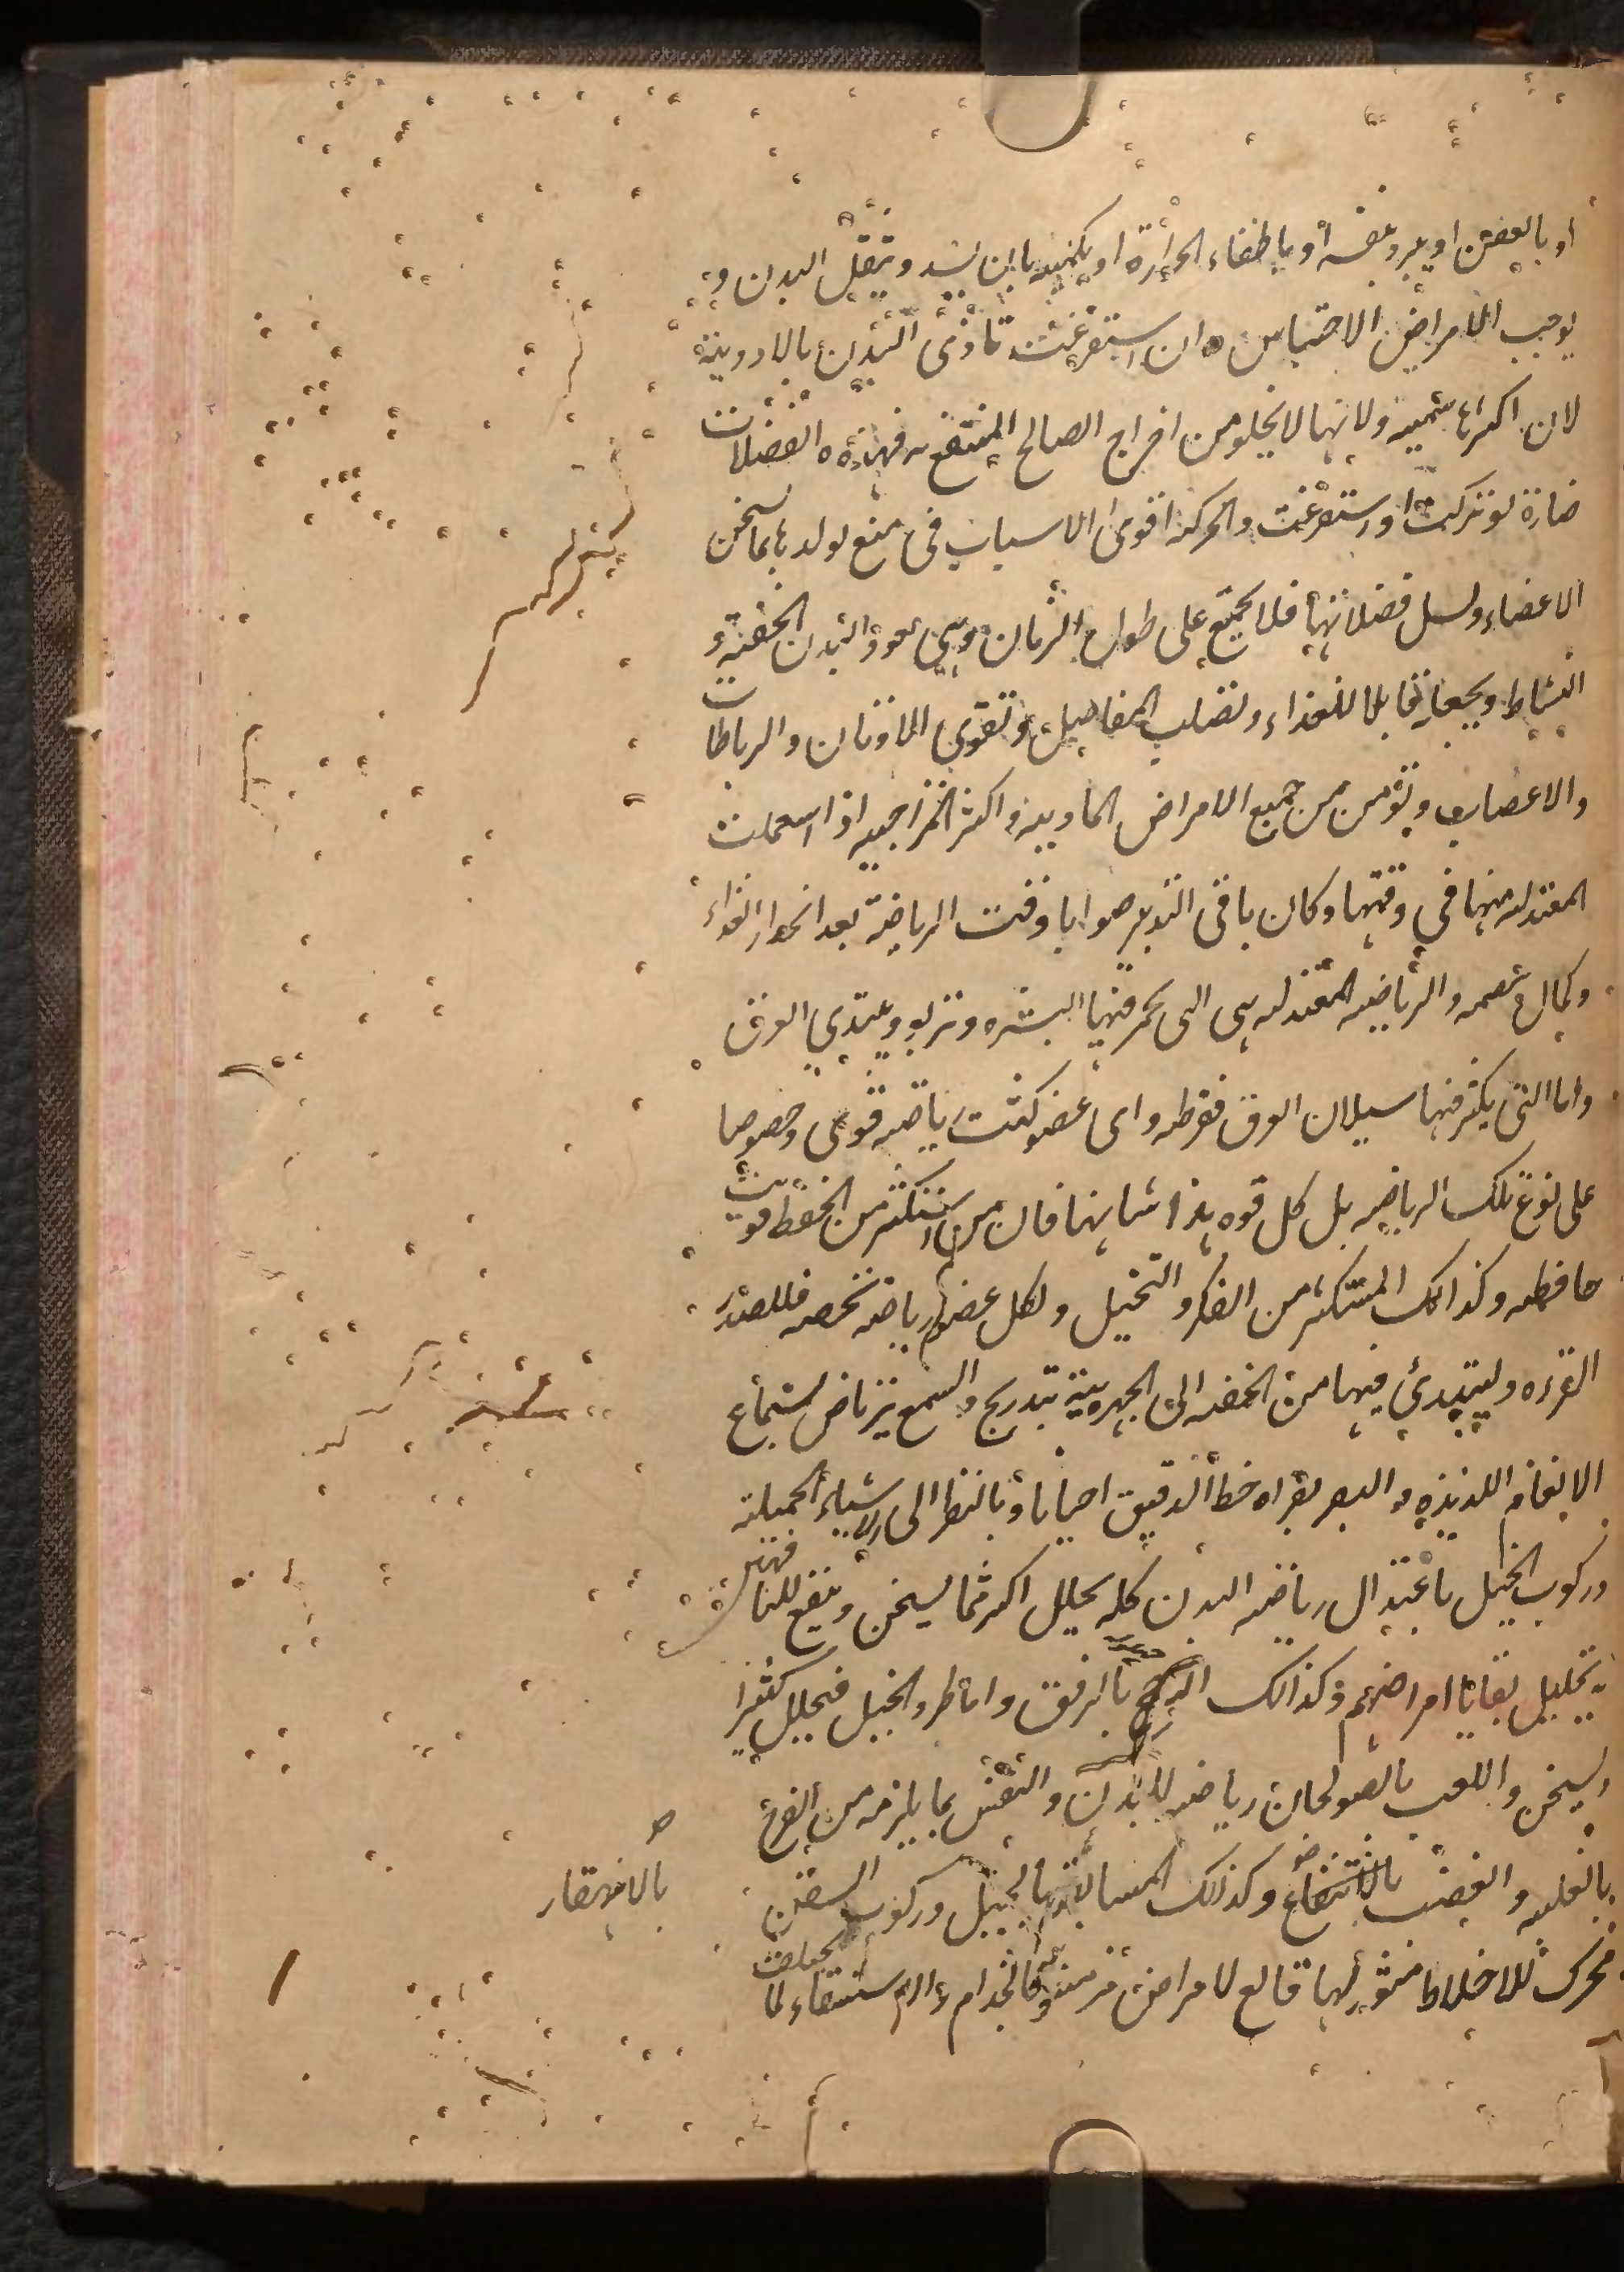 او بالعفن او يبرد بنفسه او باطفاء الحرارة او بكميته بان يسد و يثقل البدن و
يوجب الامراض الاحتباس و ان استفرغت تأذى البدن بالادوية
لان اكثرها سمية ولانها لا يخلو من اخراج الصالح المنتفع به فهذه الفضلات
ضارة لو تركت او استفرغت والحركة اقوى الاسباب فى منع تولدها بما يسخن
الاعضاء و يسيل فضلاتها فلا يجتمع على طول الزمان وهى تعود البدن الخفة و
النشاط و يجعله قابلا للغذاء و تصلب المفاصل و تقوى الاوتار و الرباطات
والاعصاب و تؤمن من جميع الامراض المادية و اكثر المزاجية اذا استعملت
المعتدلة منها فى وقتها و كان باقى التدبير صوابا وقت الرياضة بعد انحدار الغذاء
و كمال هضمه و الرياضة المعتدلة هى التى يحمر فيها البشرة و تربو و يبتدى العرق
واما التى يكثر فيها سيلان العرق فمفرطة و اى عضو كثرت رياضته قوى وخصوصا
على نوع تلك الرياضة بل كل قوة هذا شانها فان من استكثر من الحفظ قويت
حافظته و كذالك المستكثر من الفكر و التخيل و لكل عضو رياضة تخصه فللصدر
القراءة وليبتدئ فيها من الخفية الى الجهرية بتدريج و السمع يرتاض لاستماع
الانغام اللذيذة و البصر بقراءة خط الدقيق احيانا و بالنظر الى الاشياء الجميلة
و ركوب الخيل باعتدال رياضة البدن كله يحلل اكثر مما يسخن و ينفع للناقهين
بتحليل بقايا امراضهم و كذالك الترجح بالرفق و اما طرد الخيل فيحلل كثيرا
و يسخن و اللعب بالصولجان رياضة للبدن و النفس بما يلزمه من الفرح
بالغلبة و الغضب بالانقهار و كذلك المسابقة بالخيل و ركوب السفن
بالانقهار
محرك للاخلاط مثور لها قالع لامراض مزمنة كالجذام و الاستسقاء لما يختلف